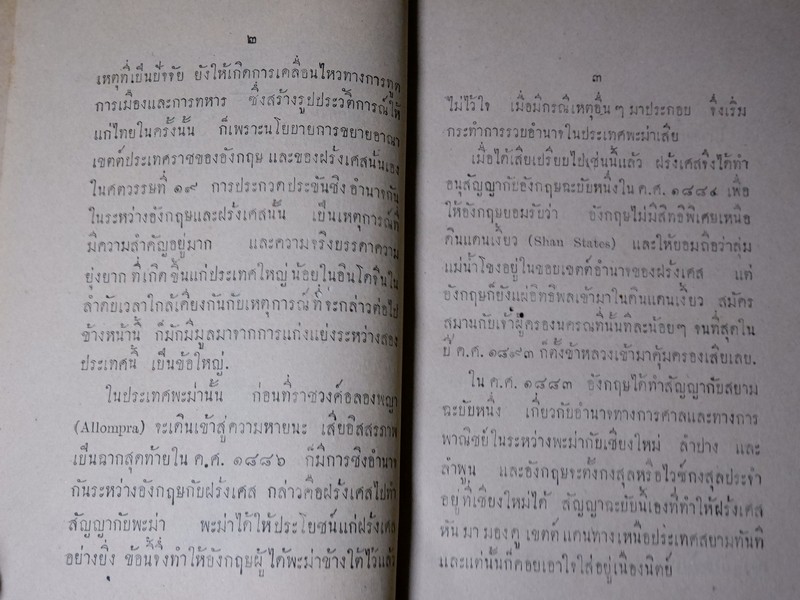 ๒
เหตุที่เป็นปัจจัย ยังให้เกิดการเคลื่อนไหวทางการทูต
การเมืองและการทหาร ซึ่งสร้างรูปประวัติการณ์ให้
แก่ไทยในครั้งนั้น ก็เพราะนโยบายการขยายอาณา
เขตต์ประเทศราชของอังกฤษ และของฝรั่งเศสนั้นเอง
ในศตวรรษที่ ๑๙ การประกวดประชันชิงอำนาจกัน
ในระหว่างอังกฤษและฝรั่งเศสนั้น เป็นเหตุการณ์ที่
มีความสำคัญอยู่มาก และความจริงบรรดาความ
ยุ่งยาก ที่เกิดขึ้นแก่ประเทศใหญ่น้อยในอินโดจีนใน
ลำดับเวลาใกล้เคียงกันกับเหตุการณ์ที่จะกล่าวต่อไป
ข้างหน้านี้ ก็มักมีมูลมาจากการแก่งแย่งระหว่างสอง
ประเทศนี้ เป็นข้อใหญ่.
ในประเทศพะม่านั้น ก่อนที่ราชวงศ์อลองพญา
(Allompra) จะเดินเข้าสู่ความหายนะ เสียอิสสรภาพ
เป็นฉากสุดท้ายใน ค.ศ. ๑๘๘๖ ก็มีการชิงอำนาจ
กันระหว่างอังกฤษกับฝรั่งเศส กล่าวคือฝรั่งเศสไปทำ
สัญญากับพะม่า พะม่าได้ให้ประโยชน์แก่ฝรั่งเศส
อย่างยิ่ง ข้อนี้จึงทำให้อังกฤษผู้ได้พะม่าข้างใต้ไว้แล้ว
๓
ไม่ไว้ใจ เมื่อมีกรณีเหตุอื่น ๆ มาประกอบ จึงเริ่ม
กระทำการรวบอำนาจในประเทศพะม่าเสีย
เมื่อได้เสียเปรียบไปเช่นนี้แล้ว ฝรั่งเศสจึงได้ทำ
อนุสัญญากับอังกฤษฉะบับหนึ่งใน ค.ศ. ๑๘๘๔ เพื่อ
ให้อังกฤษยอมรับว่า อังกฤษไม่มีสิทธิพิเศษเหนือ
ดินแดนเงี้ยว (Shan States) และให้ยอมถือว่าลุ่ม
แม่น้ำโขงอยู่ในขอบเขตต์อำนาจของฝรั่งเศส แต่
อังกฤษก็ยังแผ่อิทธิพลเข้ามาในดินแดนเงี้ยว สมัคร
สมานกับเจ้าผู้ครองนครณที่นั้นทีละน้อยๆ จนที่สุดใน
ปี ค.ศ. ๑๘๙๓ ก็ตั้งข้าหลวงเข้ามาคุ้มครองเสียเลย.
ใน ค.ศ. ๑๘๘๓ อังกฤษได้ทำสัญญากับสยาม
ฉะบับหนึ่ง เกี่ยวกับอำนาจทางการศาลและทางการ
พาณิชย์ในระหว่างพะม่ากับเชียงใหม่ ลำปาง และ
ลำพูน และอังกฤษจะตั้งกงสุลหรือไวซ์กงสุลประจำ
อยู่ที่เชียงใหม่ได้ สัญญาฉะบับนี้เองที่ทำให้ฝรั่งเศส
หันมามองดูเขตต์แดนทางเหนือประเทศสยามทันที
และแต่นั้นก็คอยเอาใจใส่อยู่เนืองนิตย์